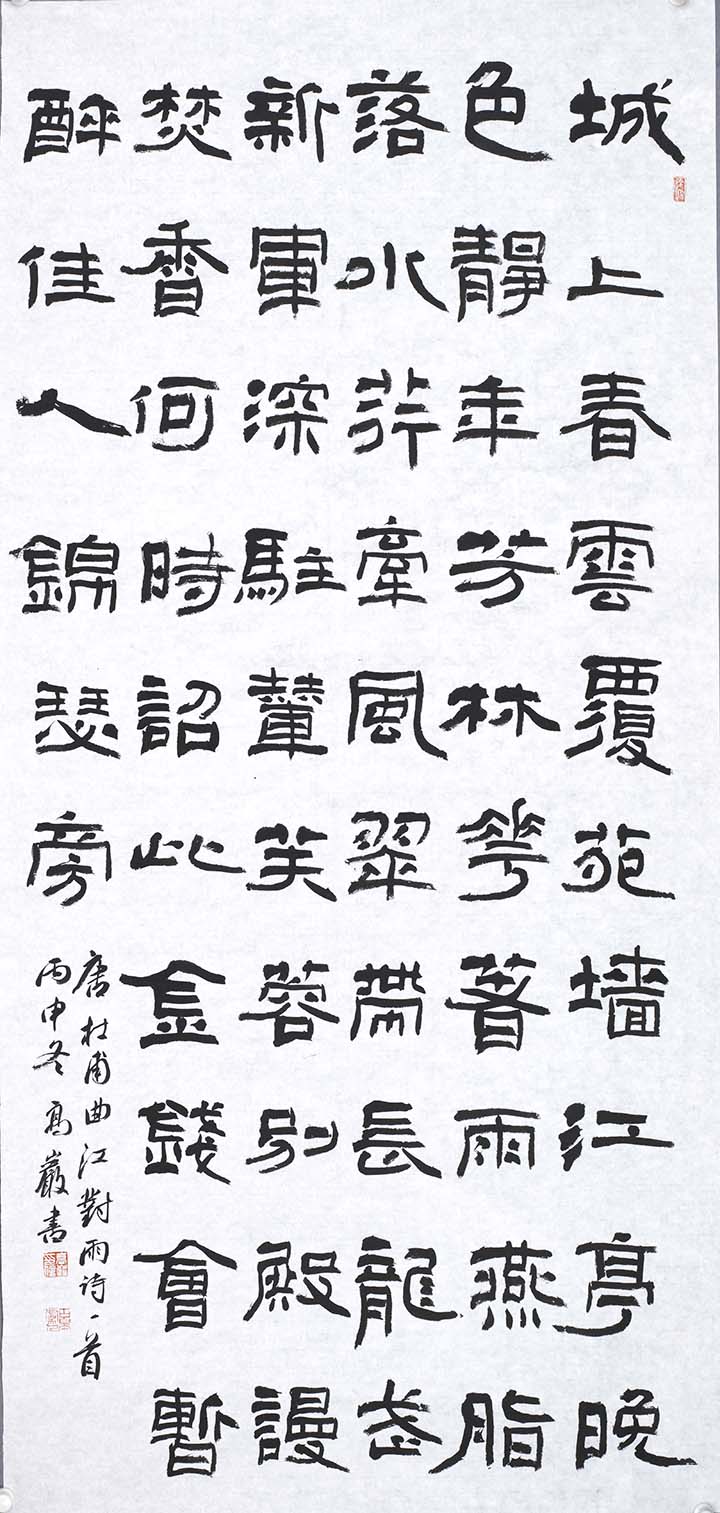 城上春雲覆苑墙江亭晚
色靜年芳林華著雨燕脂
落水荇牽風翠帶長龍武
新軍深駐輦芙蓉別殿謾
焚香何時詔此金錢會暫
醉佳人錦瑟旁
唐杜甫曲江對雨诗一首
丙申冬高巖書